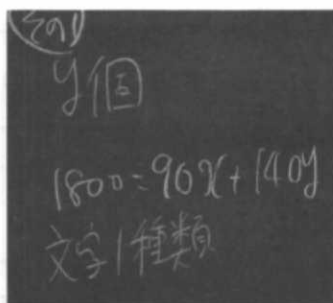 その1
y個
1800=90x+140y
文字1種類